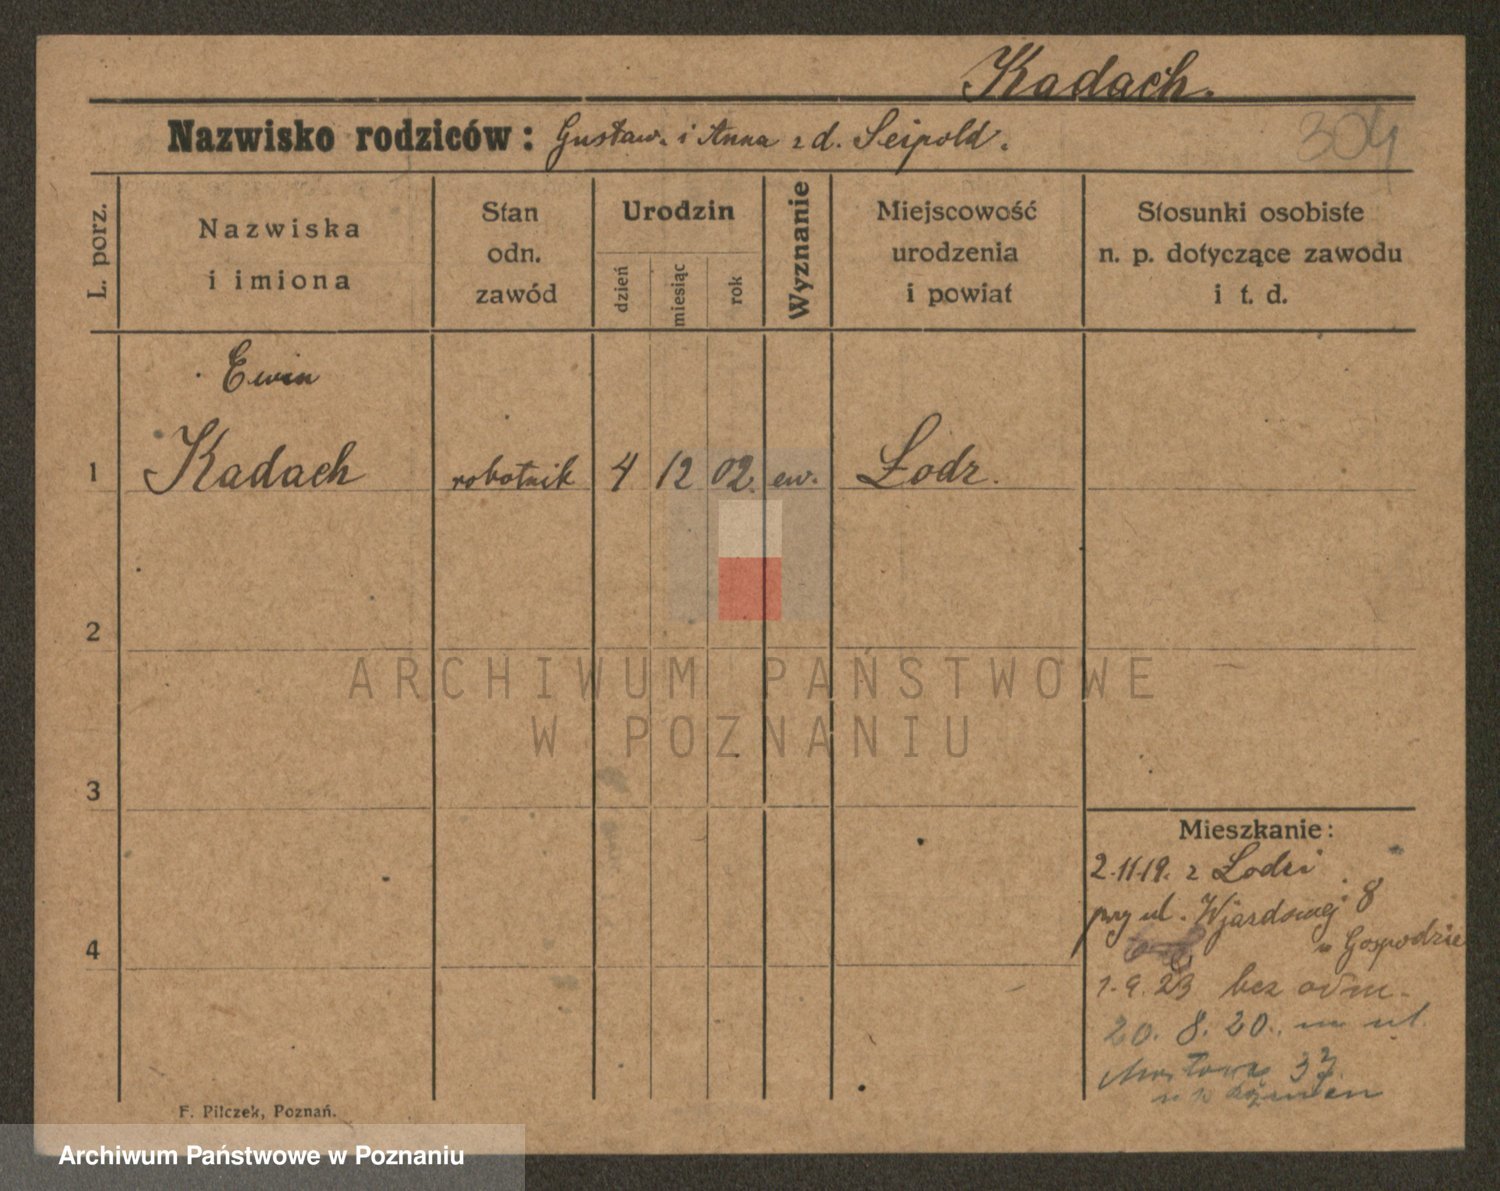 Kadach.
Nazwisko rodziców: Gustaw. i Anna z d. Seipold.
304
L. porz.
Nazwiska
i imiona
Stan
odn.
zawód
Urodzin
dzień
miesiąc
rok
Wyznanie
Miejscowość
urodzenia
i powiat
Stosunki osobiste
n. p. dotyczące zawodu
i t. d.
Erwin
1 Kadach robotnik 4 12 02. ew. Łodz.
2
ARCHIWUM PAŃSTWOWE
W POZNANIU
3
Mieszkanie:
2.11.19. z Łodzi
przy ul. Wjazdowej 8
w Gospodzie
4
1.9.23 bez odm.
20.8.20. na ul.
Mostową 37
u
F. Pilczek, Poznań.
Archiwum Państwowe w Poznaniu